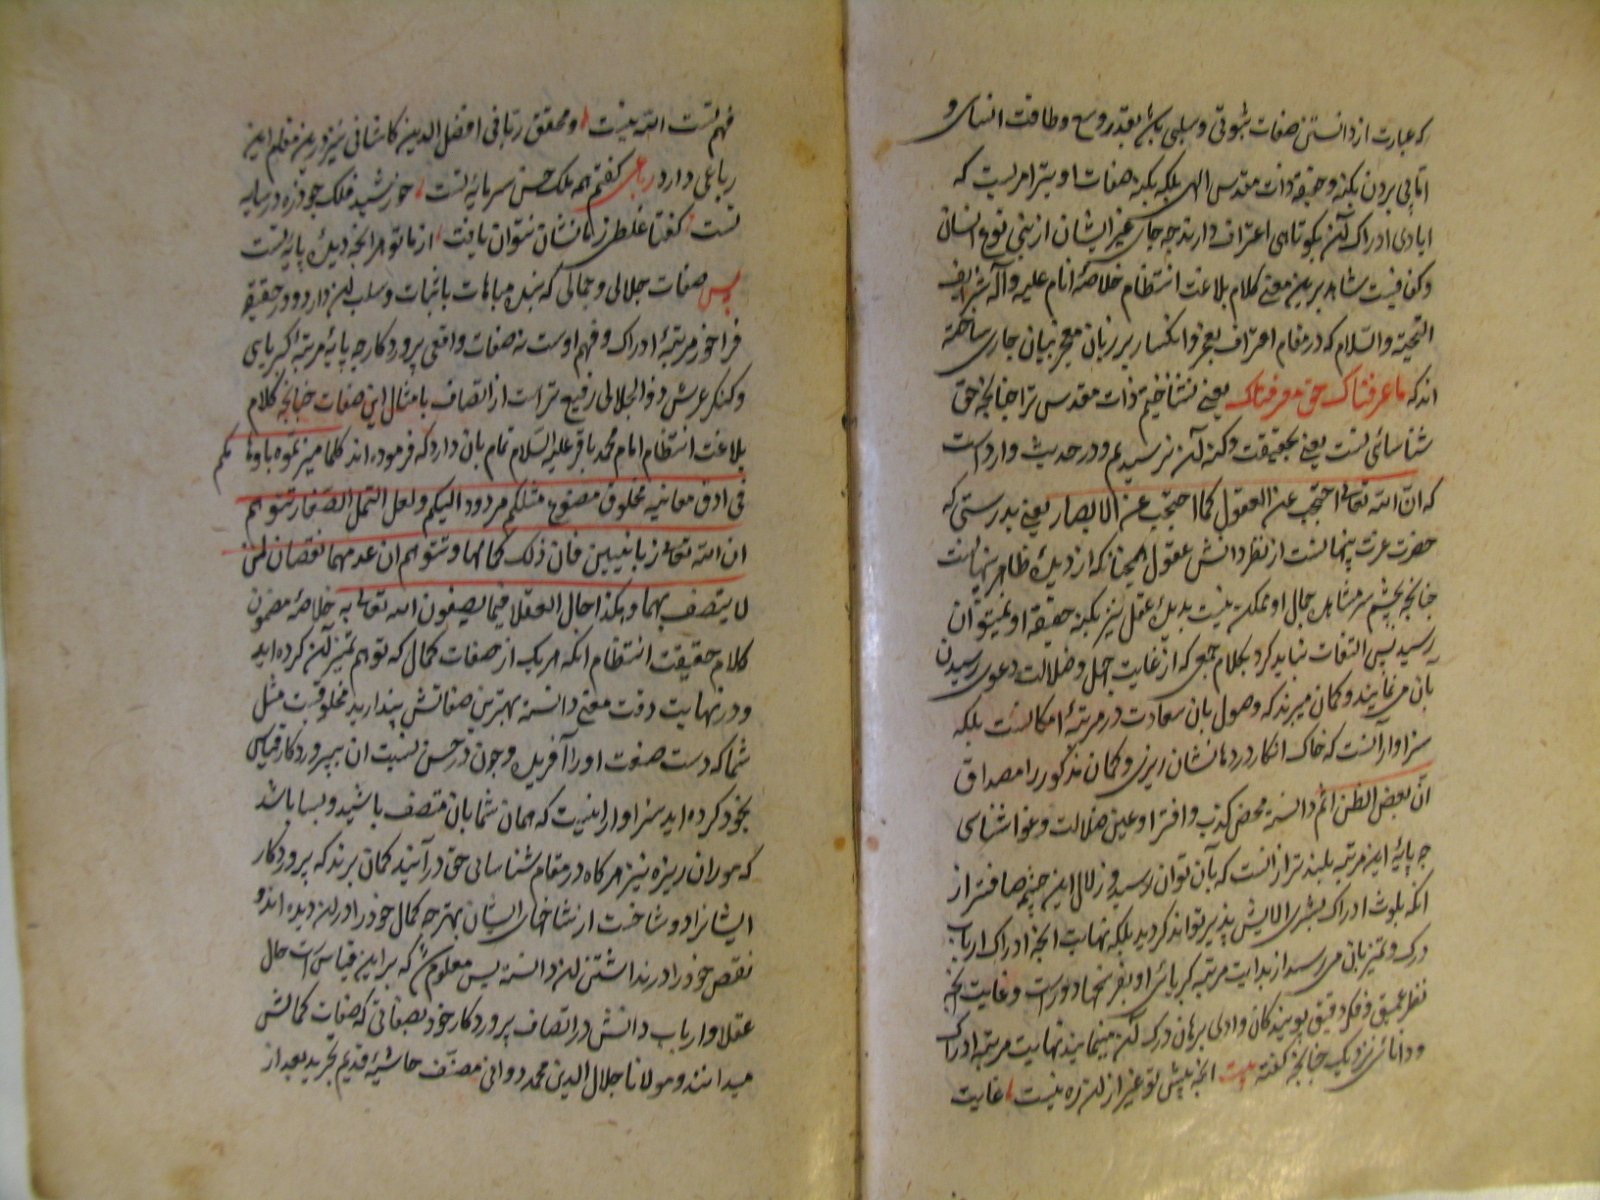 که عبارت از دانستن صفات ثبوتی و سلبی بآن بقدر وسع و طاقت انسانی و
اما پی بردن بکنه و حقیقة ذات مقدس الهی بلکه بکنه صفات او نیز امریست که
ایادی ادراک آن بکوتاهی اعتراف دارند چه جای غیر ایشان از بنی نوع انسان
و کفا فیست شاهد برین معنی کلام بلاغت انتظام خلاصهٔ انام علیه و آله شرایف
التحیته والسلام که در مقام اعتراف بعجز و انکسار بر زبان معجز بیان جاری ساخته
اند که ما عرفناک حق معرفتک یعنی نشناختیم ذات مقدس ترا چنانچه حق
شناسائی تست یعنی بحقیقت و کنه آن نرسیدیم و در حدیث وارد است
که ان الله تعالی احتجب عن العقول کما احتجب عن الابصار یعنی بدرستی که
حضرت عزت پنهانست از نظر دانش عقول همچنانکه از دیدهٔ ظاهر پنهانست
چنانچه بچشم سر مشاهدهٔ جمال او ممکن نیست بدیدهٔ عقل نیز بکنه حقیقة او نمیتوان
رسید پس التفات نباید کرد بکلام جمعی که از غایت جهل و ضلالت دعوی رسیدن
بآن می نمایند و گمان میبرند که وصول بآن سعادت در مرتبهٔ امکانست بلکه
سزاوار آنست که خاک انکار در دهانشان ریزی و گمان مذکور را مصداق
ان بعض الظن اثم دانسته محض کذب و افترا و عین ضلالت و غوا شناسی
چه پایهٔ این مرتبه بلند تر از آنست که بآن توان رسید و زلال این چشمه صافتر از
آنکه بلوث ادراک بشری الایش پذیر تواند کردید بلکه نهایت آنچه ادراک ارباب
درک و تمیز بآن می رسد از بدایت مرتبه کبریائی او بفرسخها دور است و غایت آنچه
نظر عمیق و فکر دقیق پویندکان وادی برهان درک آن مینمایند نهایت مرتبه ادراک
و دانائی نزدیک چنانچه کفته بیت آنچه پیش تو غیر از آن ره نیست غایت
فهم تست الله نیست و محقق ربانی افضل الدین کاشانی نیز درین مقام این
رباعی دارد رباعی کفتم همه ملک حسن سرمایهٔ تست خورشید فلک چو ذره در سایه
تست کفتا غلطی ز ما نشان نتوان یافت از ما تو هر آنچه دیدهٔ پایه تست
پس صفات جلالی و جمالی که بنده مباهات باثبات و سلب آن دارد در حقیقة
فراخور مرتبهٔ ادراک و فهم اوست نه صفات واقعی پروردکار چه پایهٔ مرتبه کبریایی
و کنکر عرش ذوالجلالی رفیع تر است از اتصاف بامثال این صفات چنانچه کلام
بلاغت انتظام امام محمد باقر علیه السلام تمام بآن دارد که فرموده اند کلما میزتموه باوهامکم
فی ادق معانیه مخلوق مصنوع مثلکم مردود الیکم و لعل النمل الصغار تتوهم
ان الله تعالی زبانیتین فان ذلک کمالها و تتوهم ان عدمهما نقصان لمن
لا یتصف بهما و هکذا حال العقلا فیما یصفون الله تعالی به خلاصهٔ مضمون
کلام حقیقت انتظام آنکه هر یک از صفات کمال که توهم تمیز آن کرده اید
و در نهایت دقت معنی دانسته بهترین صفاتش پندارید مخلوقیست مثل
شما که دست صنعت او را آفریده و چون در حسن نسبت آن بپروردکار قیاس
بخود کرده اید سزاوار نیست که همان شما بآن متصف باشید و بسا باشد
که موران ریزه نیز هر کاه در مقام شناسائی حق درآیند کمان برند که پروردکار
ایشانرا دو شاخست از شاخهای ایشان بهتر چه کمال خود را در آن دیده اند و
نقص خود را در نداشتن آن دانسته پس معلوم شد که برین قیاس است حال
عقلا و ارباب دانش در اتصاف پروردکار خود بصفاتی که صفات کمالش
میدانند و مولانا جلال الدین محمد دوانی مصنف حاشیهٔ قدیم تجرید بعد از